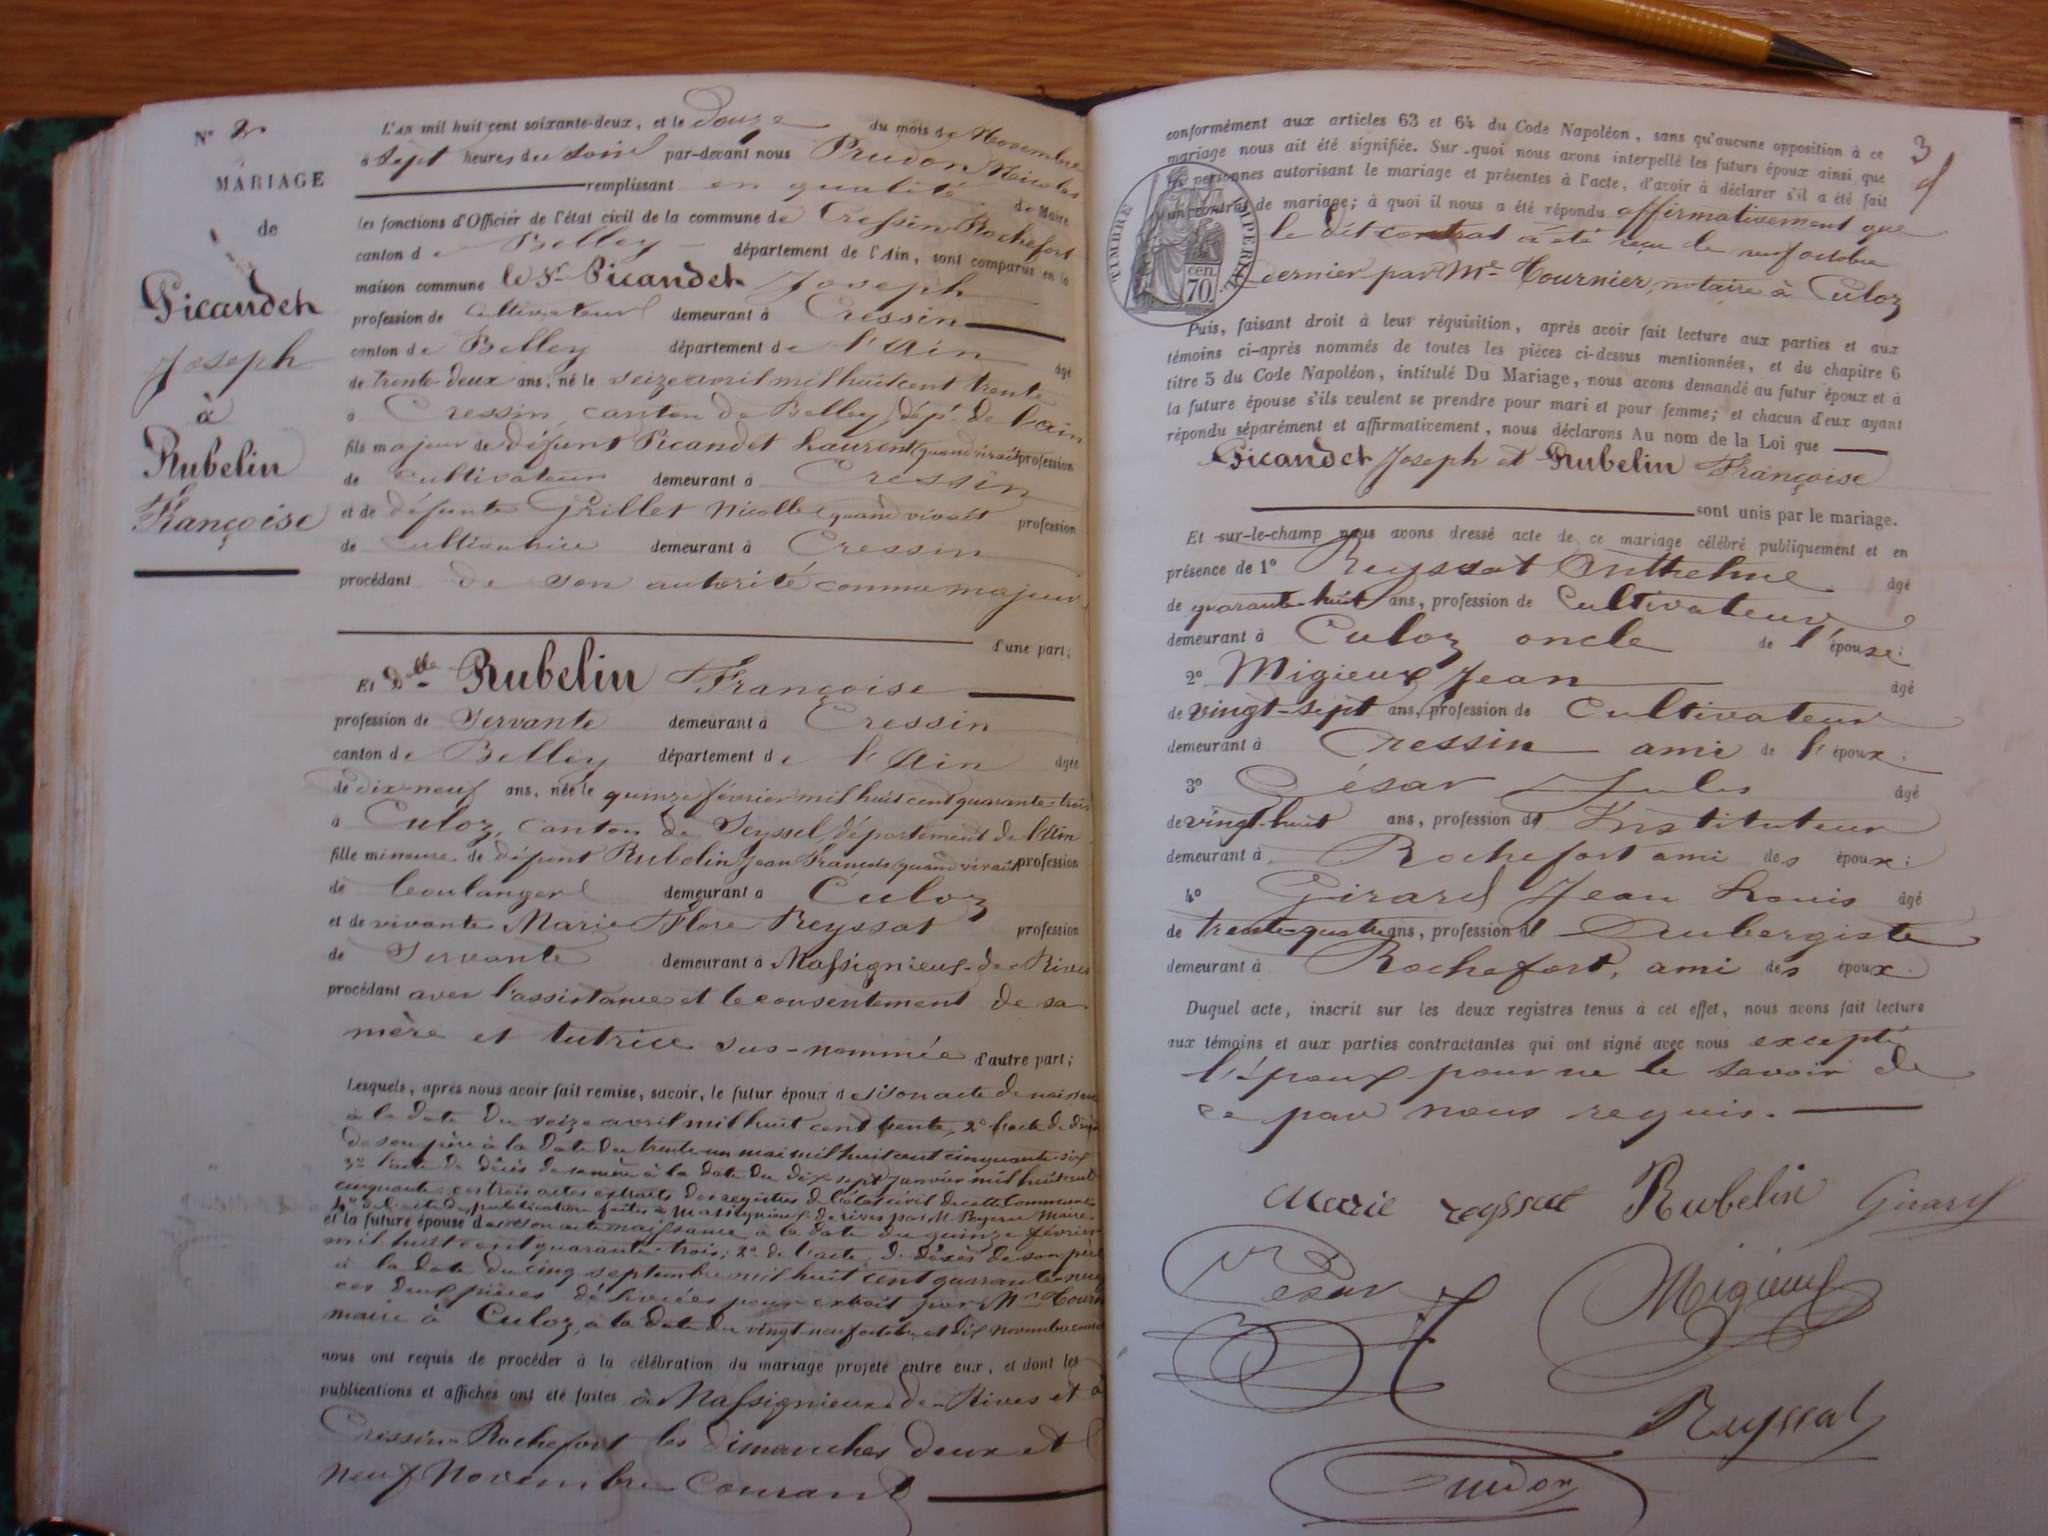 N° 2
MARIAGE
de
Picandet
Joseph
à
Rubelin
Françoise
L'AN mil huit cent soixante-deux, et le douze du mois de Novembre
à sept heures du soir par-devant nous Prudon Nicolas
remplissant en qualité de Maire
les fonctions d'Officier de l'état civil de la commune de Cressin Rochefort
canton de Belley département de l'Ain, sont comparus en la
maison commune le Sr Picandet Joseph
profession de cultivateur demeurant à Cressin
canton de Belley département de l'Ain âgé
de trente deux ans, né le seize avril mil huit cent trente
à Cressin, canton de Belley, dépt de l'ain
fils majeur de défunt Picandet Laurent (quand vivait profession
de cultivateur demeurant à Cressin
et de défunte Grillet Nicolle (quand vivait profession
de cultivatrice demeurant à Cressin
procédant de son autorité comme majeur
d'une part;
Et Delle Rubelin Françoise
profession de Servante demeurant à Cressin
canton de Belley département de l'Ain âgée
de dix-neuf ans, née le quinze février mil huit cent quarante trois
à Culoz, canton de Seyssel, département de l'Ain
fille mineure de défunt Rubelin Jean François (quand vivait profession
de boulanger demeurant à Culoz
et de vivante Marie Flore Reyssat profession
de Servante demeurant à Massignieux-de-Rives
procédant avec l'assistance et le consentement de sa
mère et tutrice sus-nommée d'autre part;
Lesquels, après nous avoir fait remise, savoir, le futur époux de son acte de naissance
à la date du seize avril mil huit cent trente, 2° l'acte de décès
de son père à la date du trente un mai mil huit cent cinquante six
3° l'acte de décès de sa mère à la date du dix sept janvier mil huit cent
cinquante: ces trois actes extraits des registres de l'état civil de cette Commune
4° de l'acte de publication faite à Massignieux de rives par M. Maire
et la future épouse de son acte naissance à la date du quinze février
mil huit cent quarante trois; 2° de l'acte de décès de son père
à la date du cinq septembre mil huit cent quarante neuf
ces deux pièces délivrées pour extrait par Mr
maire à Culoz, à la date du vingt-neuf octobre et dix novembre courant
nous ont requis de procéder à la célébration du mariage projeté entre eux, et dont les
publications et affiches ont été faites à Massignieux-de-Rives et à
Cressin-Rochefort les dimanches deux et
neuf Novembre Courant
3
conformément aux articles 63 et 64 du Code Napoléon, sans qu'aucune opposition à ce
mariage nous ait été signifiée. Sur quoi nous avons interpellé les futurs époux ainsi que
les personnes autorisant le mariage et présentes à l'acte, d'avoir à déclarer s'il a été fait
un contrat de mariage; à quoi il nous a été répondu affirmativement que
le dit contrat a été reçu le neuf octobre
dernier par Me Tournier, notaire à Culoz
TIMBRE IMPERIAL
70 cen.
Puis, faisant droit à leur réquisition, après avoir fait lecture aux parties et aux
témoins ci-après nommés de toutes les pièces ci-dessus mentionnées, et du chapitre 6
titre 5 du Code Napoléon, intitulé Du Mariage, nous avons demandé au futur époux et à
la future épouse s'ils veulent se prendre pour mari et pour femme; et chacun d'eux ayant
répondu séparément et affirmativement, nous déclarons Au nom de la Loi que
Picandet Joseph et Rubelin Françoise
sont unis par le mariage.
Et sur-le-champ nous avons dressé acte de ce mariage célébré publiquement et en
présence de 1° Reyssat Anthelme âgé
de quarante-huit ans, profession de Cultivateur
demeurant à Culoz oncle de l'épouse;
2° Migieux Jean âgé
de vingt-sept ans, profession de Cultivateur
demeurant à Cressin ami de l'époux;
3° César Jules âgé
de vingt-huit ans, profession de Instituteur
demeurant à Rochefort ami des époux;
4° Girard Jean Louis âgé
de trente-quatre ans, profession d'Aubergiste
demeurant à Rochefort, ami des époux.
Duquel acte, inscrit sur les deux registres tenus à cet effet, nous avons fait lecture
aux témoins et aux parties contractantes qui ont signé avec nous excepté
l'époux pour ne le savoir de
ce par nous requis.
Marie reyssat Rubelin Girard
César Migieux
Reyssat
Prudon